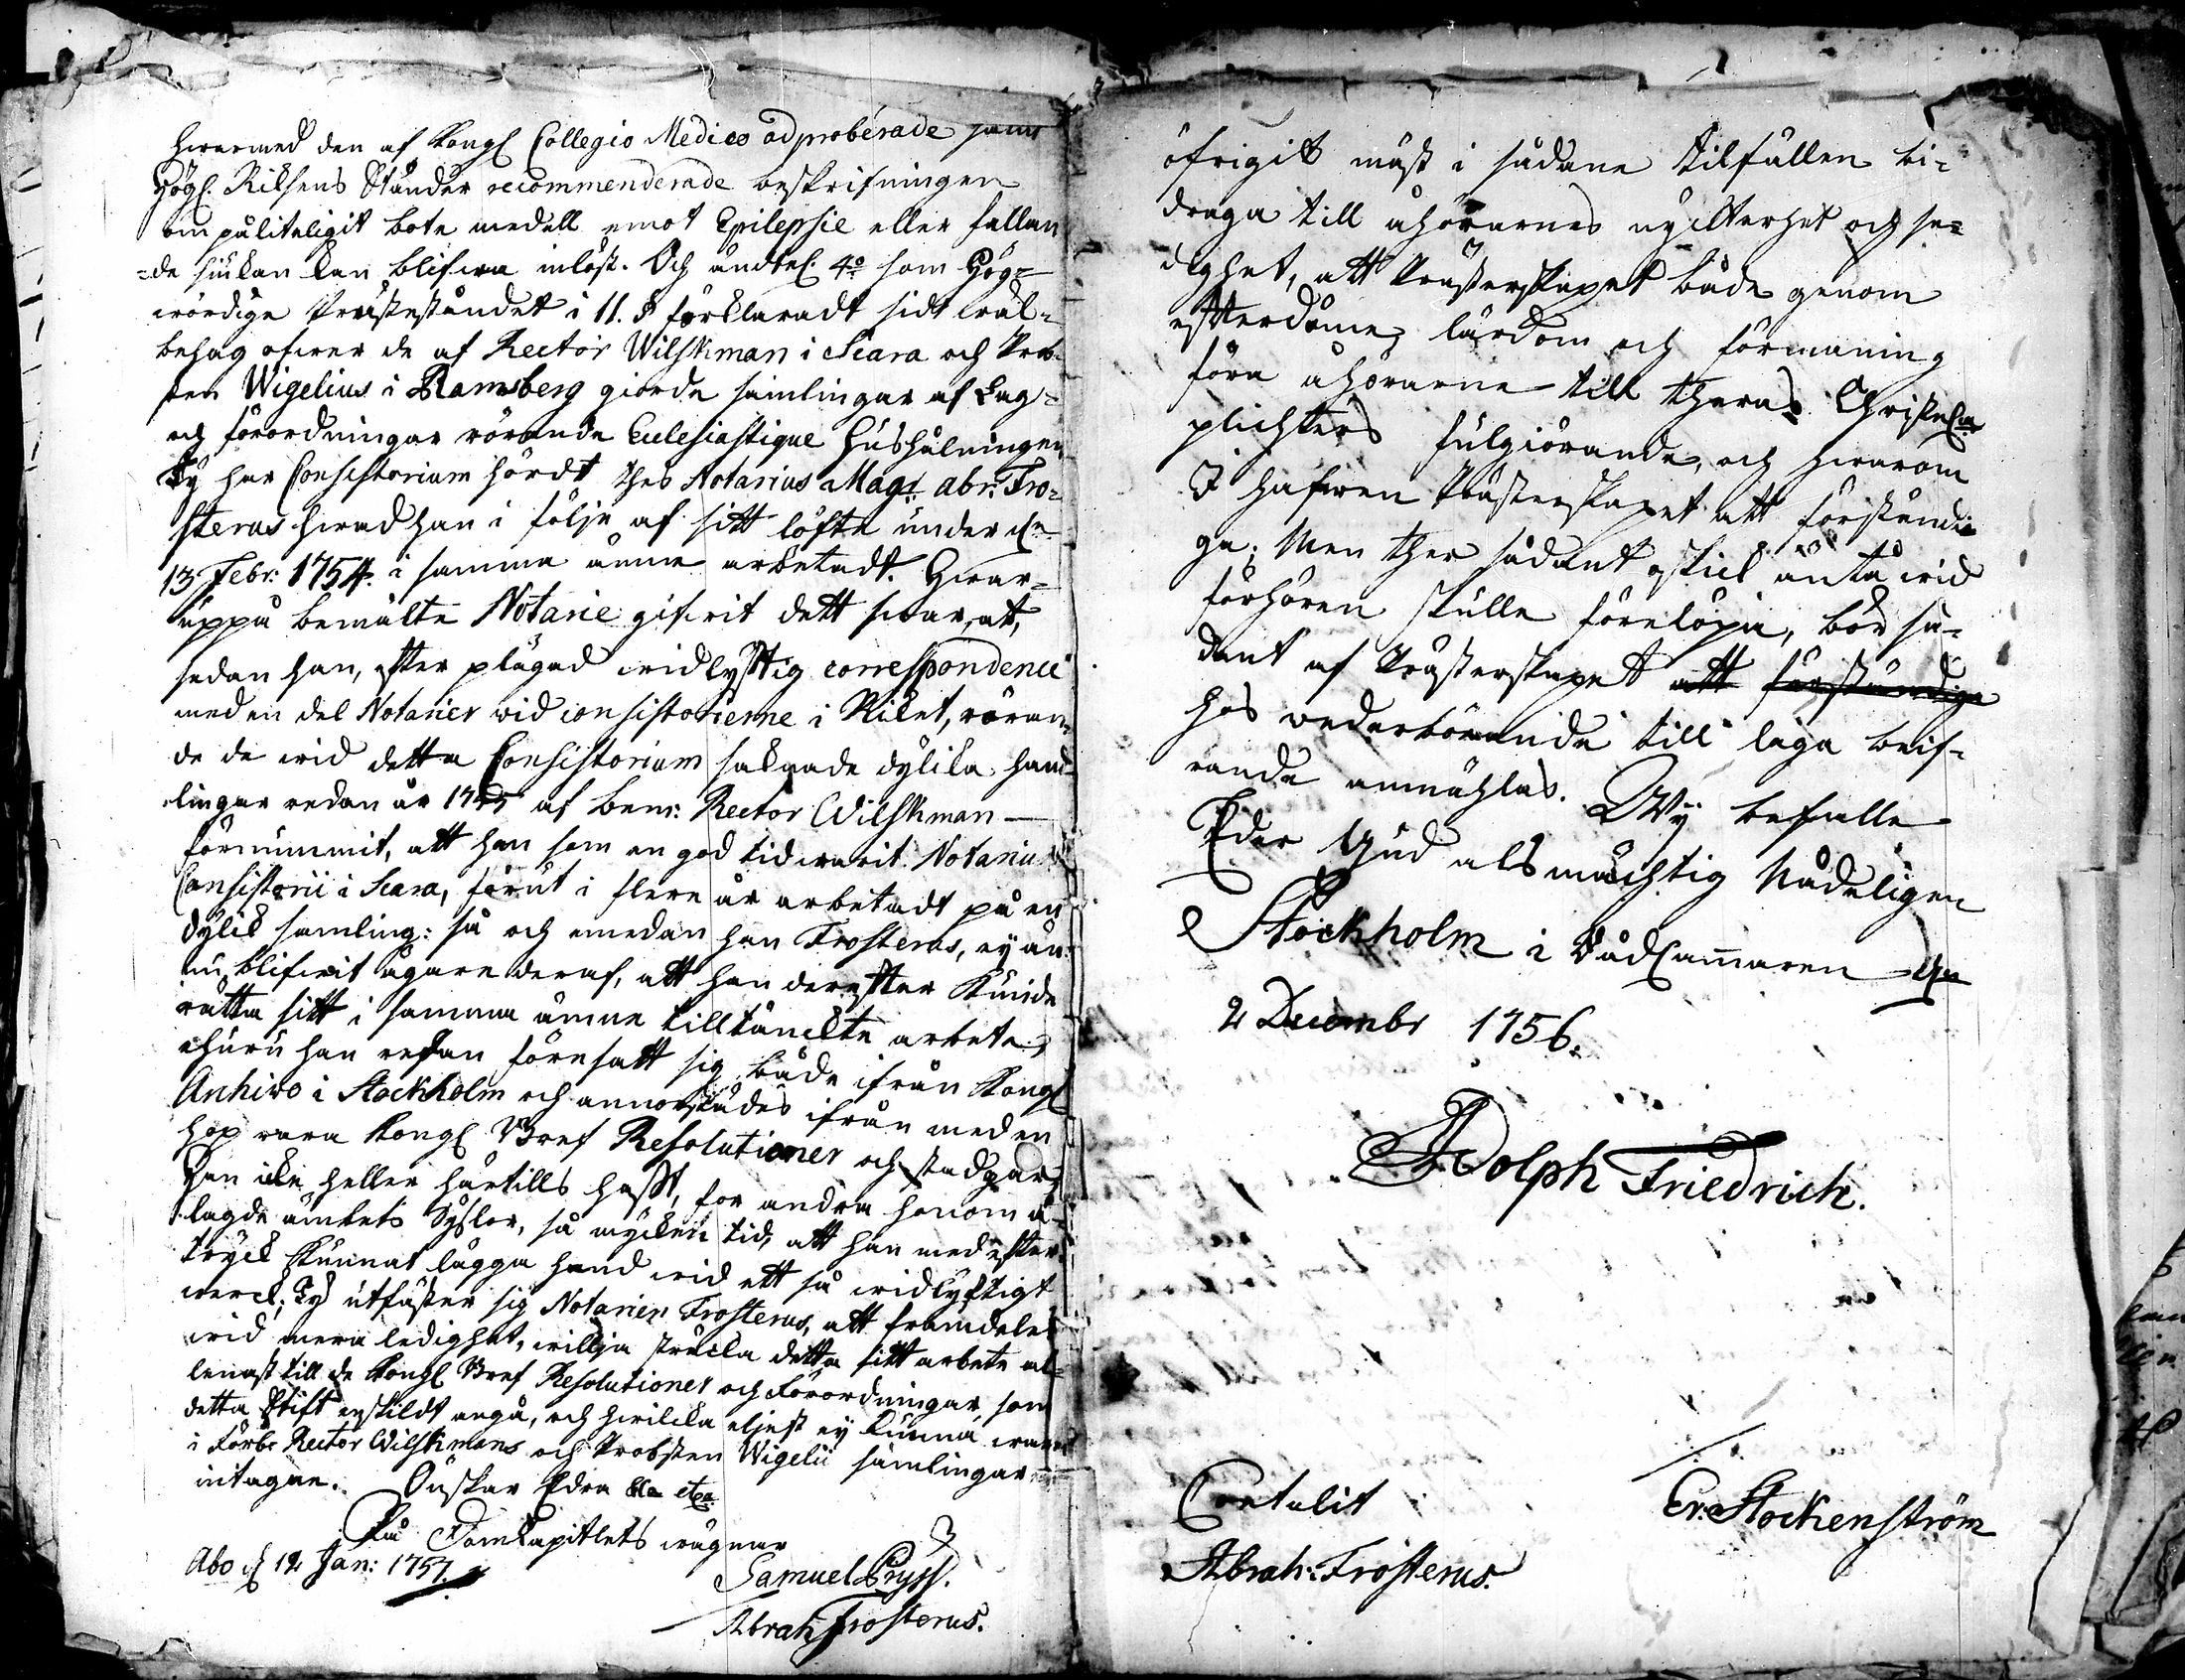 hwarmed den af Kongl Collegio Medico adproberade samt
Högl. Riksens Ständer recommenderade beskrifningen
om påliteligit bote medell emot Epilepsie eller fallan
=de siukan kan blifwa inlöst. Och ändtel. 4:o som Hög=
wördige Prästeståndet i 11. § förklaradt sidt wäl=
behag öfwer de af Rector Wilskman i Scara och Prob=
sten Wigelius i Ramsberg giorde samlingar af Lag=
och förordningar rörande Ecclesiastique hushålningen
Ty har Consistorium hördt thes Notarius Mag: Abr: Fro=
sterus hwad han i följe af sitt löfte under d.
13 Febr: 1754. i samma ämne arbetadt. Hwar=
uppå bemälte Notarie gifwit dett swar, at,
sedan han, efter plägad widlyftig correspondence
med en del Notarier wid consistorierne i Riket, röran=
de de wid detta Consistorium saknade dylika hand=
lingar redan år 1755 af bem: Rector Wilskman
förnummit, att han som en god tid warit Notarius
Consistorii i Scara, förut i flere år arbetadt på en
dylik samling: så och emedan han Frosterus, ey än=
nu blifwit ägare deraf, att han derefter kunde
rätta sitt i samma ämne tilltänckte arbete,
ehuru han redan föresatt sig både ifrån Kongl
Archivo i Stockholm och annorstädes ifrån med en
hop rara Kongl Bref Resolutioner och stadgar,
Han icke heller härtills haft, för andra honom å=
lagde ämbets Syslor, så mycken tid, att han med efter=
tryck kunnat lägga hand wid ett så widlyftigt
werck; Ty utfäster sig Notarien Frosterus, att framdeles
wid mera ledighet, willja sträcka detta sitt arbete al=
lenast till de Kongl Bref Resolutioner och Förordningar som
detta Stift enskildt angå, och hwilcka eljest ey kunna wara
i Förbe Rector Wilskmans och Probsten Wigelii samlingar
intagne. Önskar Edra etc etc
På DomCapitlets wägnar
Åbo d 12 Jan: 1757.
Samuel Pryss.
Abrah Frosterus.
öfrigit måst i sådane tilfällen bi=
draga till åhörarnes nyckterhet och se=
dighet, att Prästerskapet både genom
efterdöme, lärdom och förmaning
föra åhörarne till theras Christel.
plichters fulgiörande, och hwarom
I hafwen Prästerskapet att förständi=
ga; Men ther sådant oskick ändå wid
förhören skulle förelöpa, bör så=
dant af Prästerskapet att förständiga
hos wederbörande till laga beif=
rande anmählas. Wij befalle
Eder Gud alsmächtig Nådeligen
Stockholm i RådCammaren den
2 Decembr 1756.
Adolph Friedrich.
Contulit
Er. Stockenström
Abrah: Frosterus.